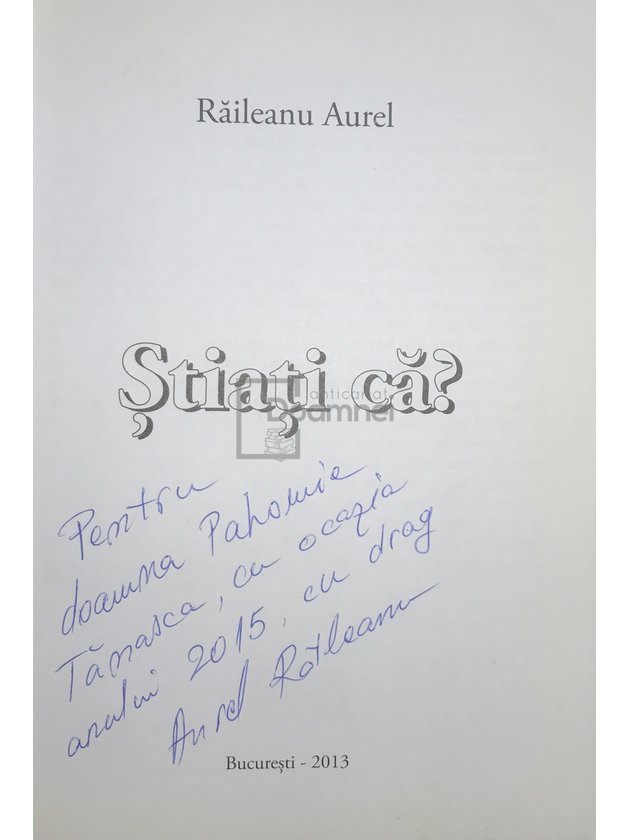 Răileanu Aurel
Știați că?
anticariat
Doamnei
Pentru
doamna Pahomia
Tănasca, cu ocazia
anului 2015, cu drag
Aurel Răileanu
București - 2013